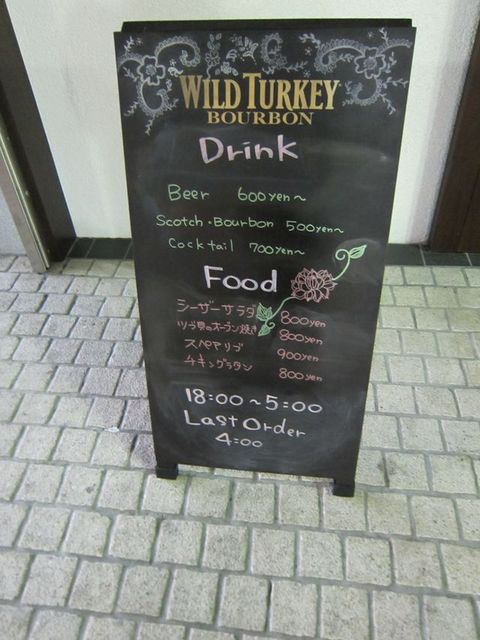 WILD TURKEY
BOURBON
Drink
Beer 600yen~
Scotch・Bourbon 500yen~
Cocktail 700yen~
Food
シーザーサラダ 800yen
オーブン焼き 800yen
スペアリブ 900yen
チキングラタン 800yen
18:00~5:00
Last Order
4:00